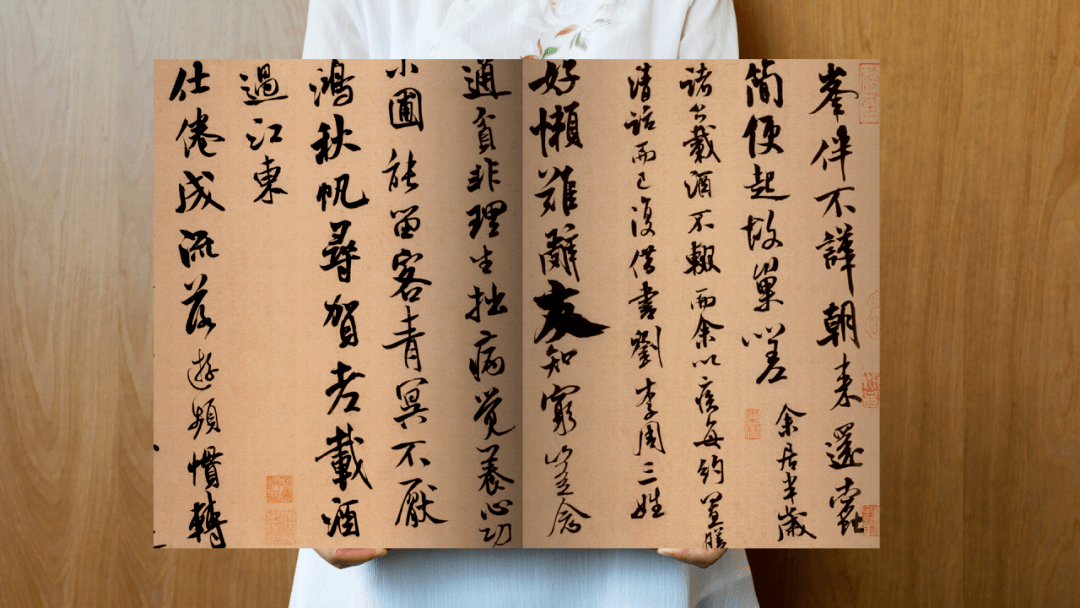 峯伴不譁朝来還蠹
簡便起故巢嗟
余居半歲
諸公載酒不輟而余以疾每約置膳
清話而已復借書劉李周三姓
好懶難辭友知窮豈念
通貧非理生拙病覺養心功
小圃能留客青冥不厭
鴻秋帆尋賀老載酒
過江東
仕倦成流落遊頻慣轉